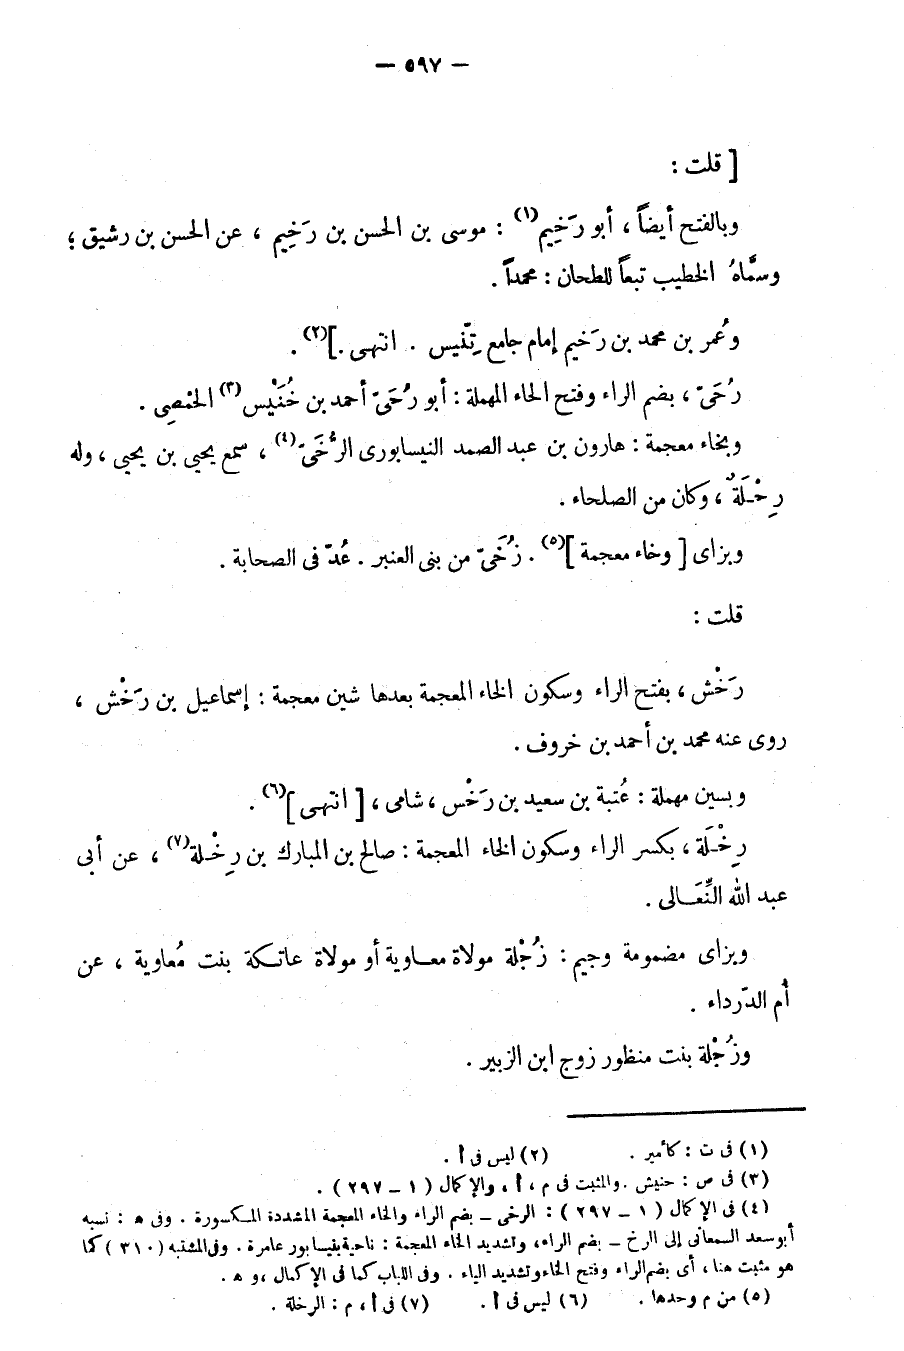 — ٥٩٧ —
[ قلت :
وبالفتح أيضاً ، أبو رَخِيم(١) : موسى بن الحسن بن رَخِيم ، عن الحسن بن رشيق ؛
وسمَّاهُ الخطيب تبعاً للطحان : محمداً .
وعُمر بن محمد بن رَخيم إمام جامع تِنّيس . انتهى .](٢) .
رُحَىّ ، بضم الراء وفتح الحاء المهملة : أبو رُحَىّ أحمد بن خُنَيْس(٣) الحمْصِى .
وبخاء معجمة : هارون بن عبد الصمد النيسابورى الرُّخَىّ(٤) ، سمع يحيى بن يحيى ، وله
رِحْلَةٌ ، وكان من الصلحاء .
وبزاى [ وخاء معجمة ](٥) . زُخَىّ من بنى العنبر . عُدّ فى الصحابة .
قلت :
رَخْش ، بفتح الراء وسكون الخاء المعجمة بعدها شين معجمة : إسماعيل بن رَخْش ،
روى عنه محمد بن أحمد بن خروف .
وبسين مهملة : عُتبة بن سعيد بن رَخْس ، شامى ، [ انتهى ](٦) .
رِخْلَة ، بكسر الراء وسكون الخاء المعجمة : صالح بن المبارك بن رِخْلة(٧) ، عن أبى
عبد الله النِّعَالى .
وبزاى مضمومة وجيم : زُجْلة مولاة معاوية أو مولاة عاتكة بنت مُعاوية ، عن
أم الدّرداء .
وزُجْلة بنت منظور زوج ابن الزبير .
(١) فى ت : كأمير . (٢) ليس فى أ .
(٣) فى ص : حنيش . والمثبت فى م ، أ ، والإكمال ( ١ – ٢٩٧ ) .
(٤) فى الإكمال ( ١ – ٢٩٧ ) : الرخى – بضم الراء والخاء المعجمة المشددة المكسورة . وفى ه : نسبه
أبو سعد السمعانى إلى الرخ – بضم الراء، وتشديد الخاء المعجمة : ناحية بنيسابور عامرة . وفى المشتبه ( ٣١٠ ) كما
هو مثبت هنا ، أى بضم الراء وفتح الخاء وتشديد الياء . وفى اللباب كما فى الإكمال ، و ه .
(٥) من م وحدها . (٦) ليس فى أ . (٧) فى أ ، م : الرخلة .